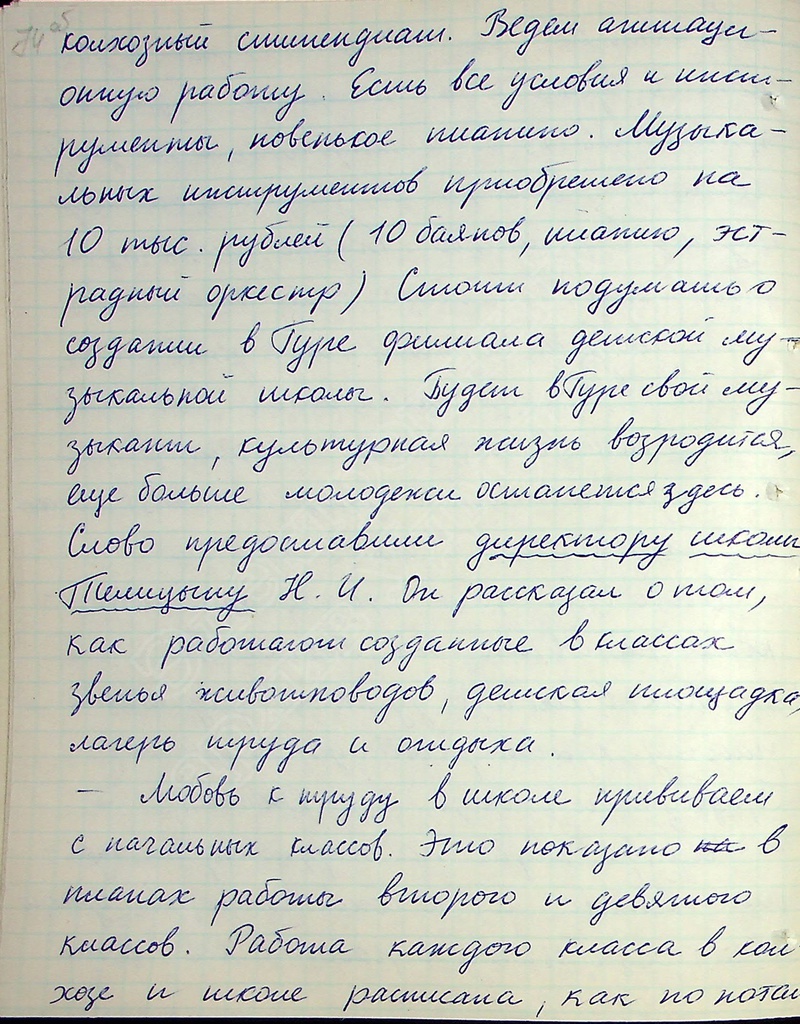 74 об
колхозный стипендиат. Ведем агитаци-
онную работу. Есть все условия и инст-
рументы, новенькое пианино. Музыка-
льных инструментов приобретено на
10 тыс. рублей (10 баянов, пианино, эст-
радный оркестр) Стоит подумать о
создании в Гуре филиала детской му-
зыкальной школы. Будет в Гуре свой му-
зыкант, культурная жизнь возродится,
еще больше молодежи останется здесь.
Слово предоставили директору школы
Телицыну Н. И. Он рассказал о том,
как работают созданные в классах
звенья животноводов, детская площадка,
лагерь труда и отдыха.
- Любовь к труду в школе прививаем
с начальных классов. Это показано на в
планах работы второго и девятого
классов. Работа каждого класса в кол
хозе и школе расписана, как по нотам